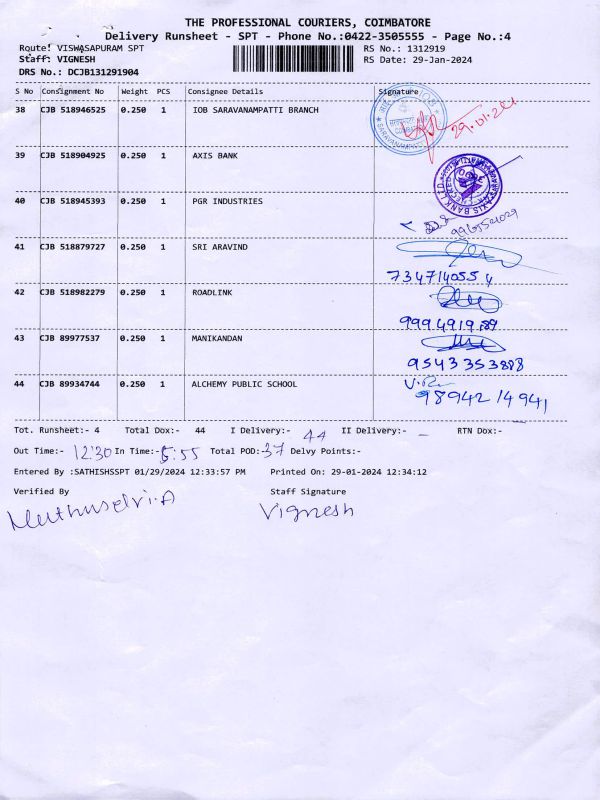 THE PROFESSIONAL COURIERS, COIMBATORE
Delivery Runsheet - SPT - Phone No.:0422-3505555 - Page No.:4
Route: VISWASAPURAM SPT RS No.: 1312919
Staff: VIGNESH RS Date: 29-Jan-2024
DRS No.: DCJB131291904
S No Consignment No Weight PCS Consignee Details Signature
38 CJB 518946525 0.250 1 IOB SARAVANAMPATTI BRANCH
29.01.24
39 CJB 518904925 0.250 1 AXIS BANK
AXIS BANK LTD
40 CJB 518945393 0.250 1 PGR INDUSTRIES
41 CJB 518879727 0.250 1 SRI ARAVIND
7347140554
42 CJB 518982279 0.250 1 ROADLINK
9994919189
43 CJB 89977537 0.250 1 MANIKANDAN
9543353888
44 CJB 89934744 0.250 1 ALCHEMY PUBLIC SCHOOL
9894214941
Tot. Runsheet:- 4 Total Dox:- 44 I Delivery:- 44 II Delivery:- – RTN Dox:-
Out Time:- 12:30 In Time:- 5:55 Total POD:- 37 Delvy Points:-
Entered By :SATHISHSSPT 01/29/2024 12:33:57 PM Printed On: 29-01-2024 12:34:12
Verified By Staff Signature
Muthuselvi.A Vignesh